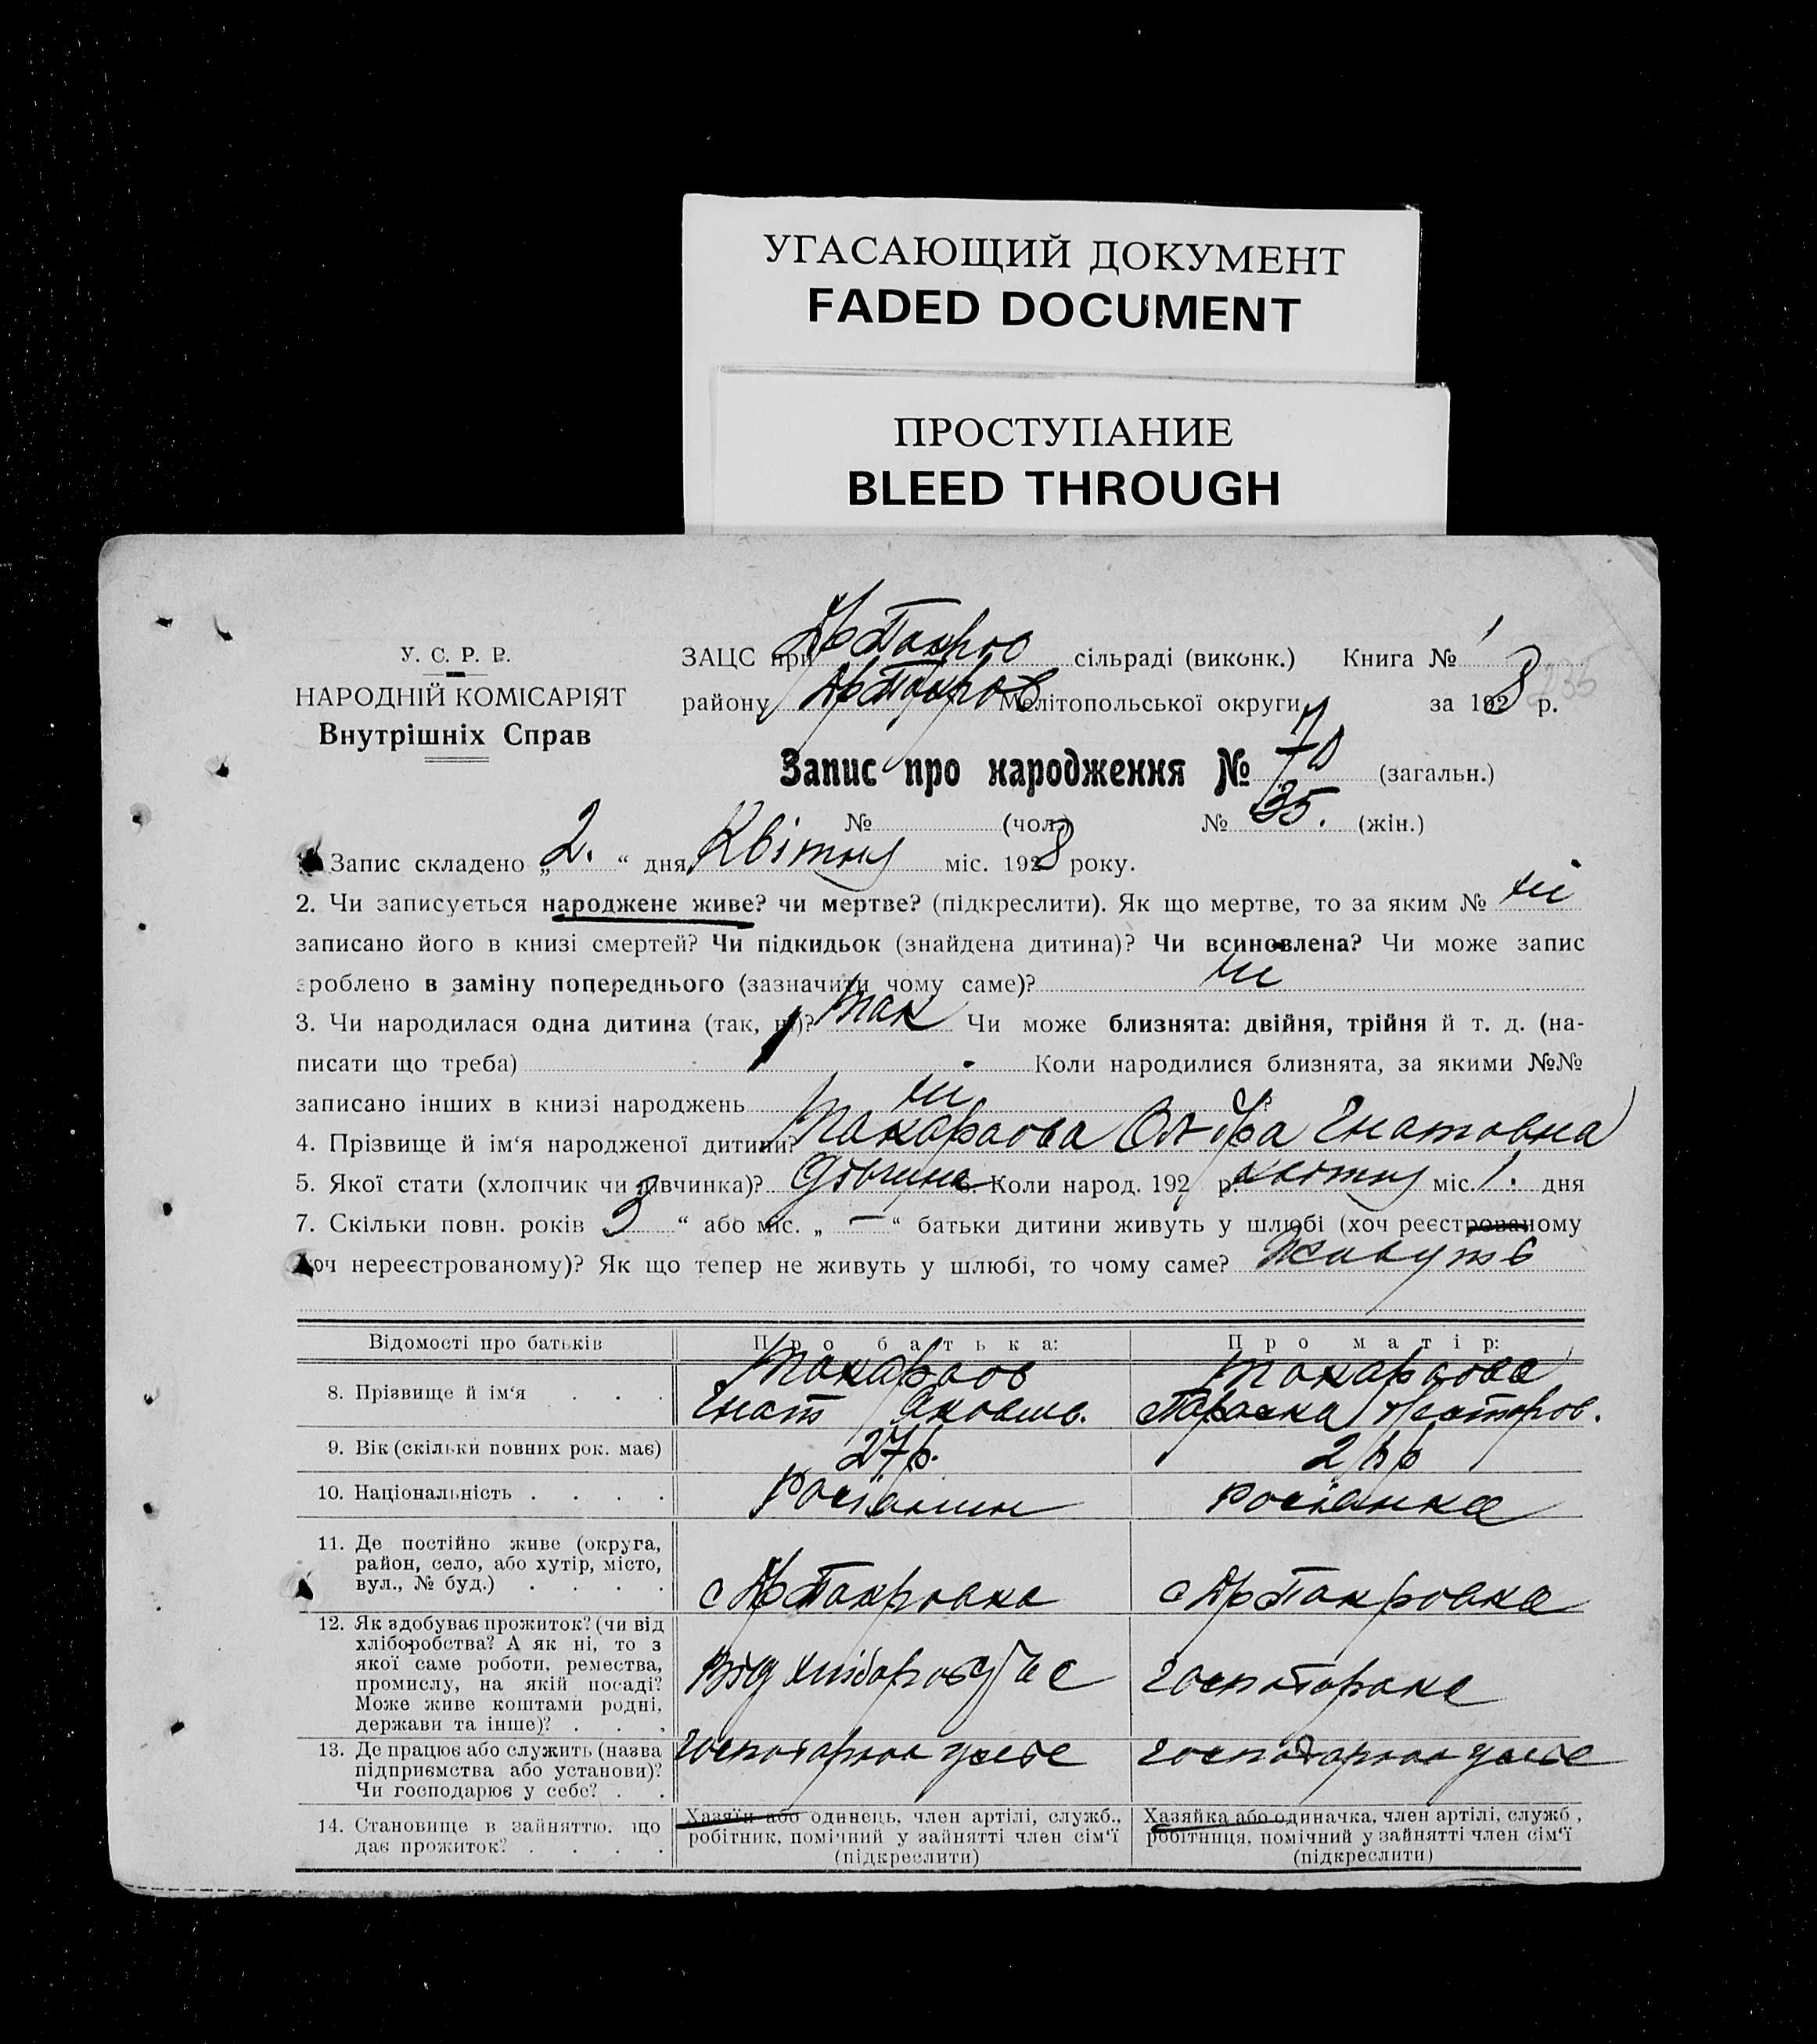 УГАСАЮЩИЙ ДОКУМЕНТ
FADED DOCUMENT
ПРОСТУПАНИЕ
BLEED THROUGH
У. С. Р. Р.
НАРОДНІЙ КОМІСАРІЯТ
Внутрішніх Справ
ЗАЦС при сільраді (виконк.) Книга № 1
району Мелітопольської округи за 1928 р.
Запис про народження № 70 (загальн.)
№ (чол.) № 35. (жін.)
Запис складено „ 2. “ дня Квітня міс. 1928 року.
2. Чи записується народжене живе? чи мертве? (підкреслити). Як що мертве, то за яким № ні
записано його в книзі смертей? Чи підкидьок (знайдена дитина)? Чи всиновлена? Чи може запис
зроблено в заміну попереднього (зазначити чому саме)? ні
3. Чи народилася одна дитина (так, ні)? так Чи може близнята: двійня, трійня й т. д. (на-
писати що треба) Коли народилися близнята, за якими №№
записано інших в книзі народжень ні ?
4. Прізвище й ім‘я народженої дитини? Гнатовна
5. Якої стати (хлопчик чи дівчинка)? дівчина 6. Коли народ. 192 р. квітня міс. 1. дня
7. Скільки повн. років 3 “ або міс. „ — “ батьки дитини живуть у шлюбі (хоч реєстрованому
хоч нереєстрованому)? Як що тепер не живуть у шлюбі, то чому саме? живуть
Відомості про батьків Про батька: Про матір:
8. Прізвище й ім‘я . . .
Гнат Яковшв. Параска
9. Вік (скільки повних рок. має) 27 р.
10. Національність . . . . Росіянин росіянка
11. Де постійно живе (округа,
район, село, або хутір, місто,
вул., № буд.) . . . .
12. Як здобуває прожиток? (чи від
хліборобства? А як ні, то з
якої саме роботи, ремества,
промислу, на якій посаді?
Може живе коштами родні,
держави та інше)? . . .
Від
13. Де працює або служить (назва
підприємства або установи)?
Чи господарює у себе? . .
14. Становище в зайняттю, що
дає прожиток? . . . .
Хазяїн або одинець, член артілі, служб.,
робітник, помічний у зайнятті член сім‘ї
(підкреслити)
Хазяйка або одиначка, член артілі, служб.,
робітниця, помічний у зайнятті член сім‘ї
(підкреслити)